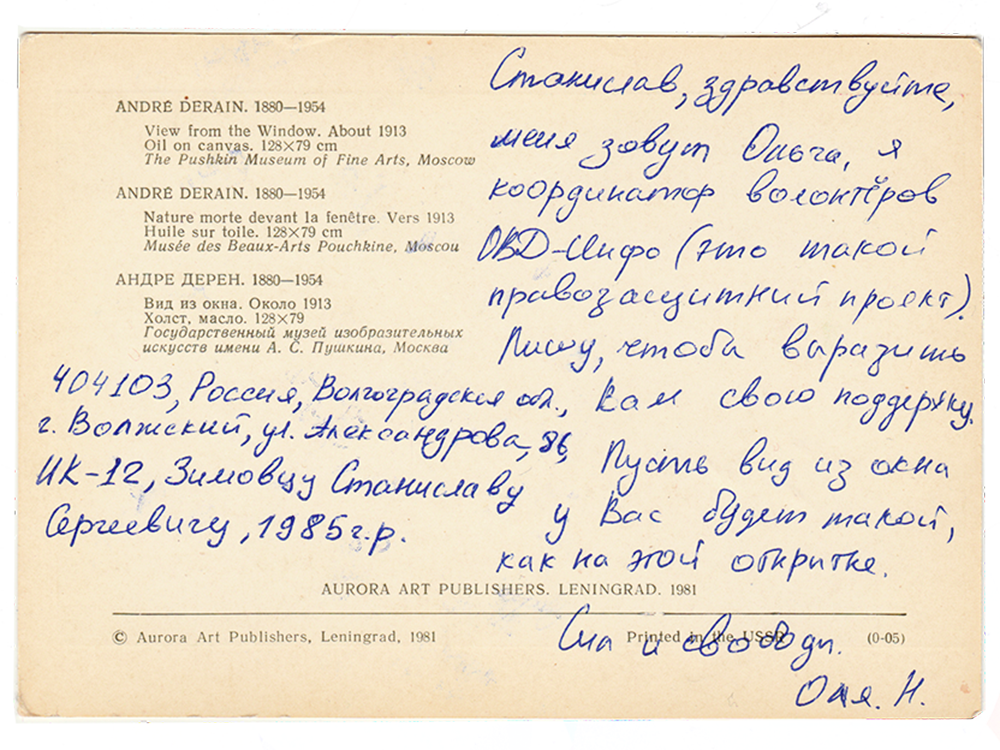 ANDRÉ DERAIN. 1880—1954
View from the Window. About 1913
Oil on canvas. 128×79 cm
The Pushkin Museum of Fine Arts, Moscow
ANDRÉ DERAIN. 1880—1954
Nature morte devant la fenêtre. Vers 1913
Huile sur toile. 128×79 cm
Musée des Beaux-Arts Pouchkine, Moscou
АНДРЕ ДЕРЕН. 1880—1954
Вид из окна. Около 1913
Холст, масло. 128×79
Государственный музей изобразительных
искусств имени А. С. Пушкина, Москва
404103, Россия, Волгоградская обл.,
г. Волжский, ул. Александрова, 86,
ИК-12, Зимовцу Станиславу
Сергеевичу, 1985 г.р.
Станислав, здравствуйте,
меня зовут Ольга, я
координатор волонтёров
ОВД-Инфо (это такой
правозащитный проект).
Пишу, чтобы выразить
Вам свою поддержку.
Пусть вид из окна
у Вас будет такой,
как на этой открытке.
Сил и свободы.
Оля. Н.
AURORA ART PUBLISHERS. LENINGRAD. 1981
© Aurora Art Publishers, Leningrad, 1981
Printed in the USSR
(0-05)